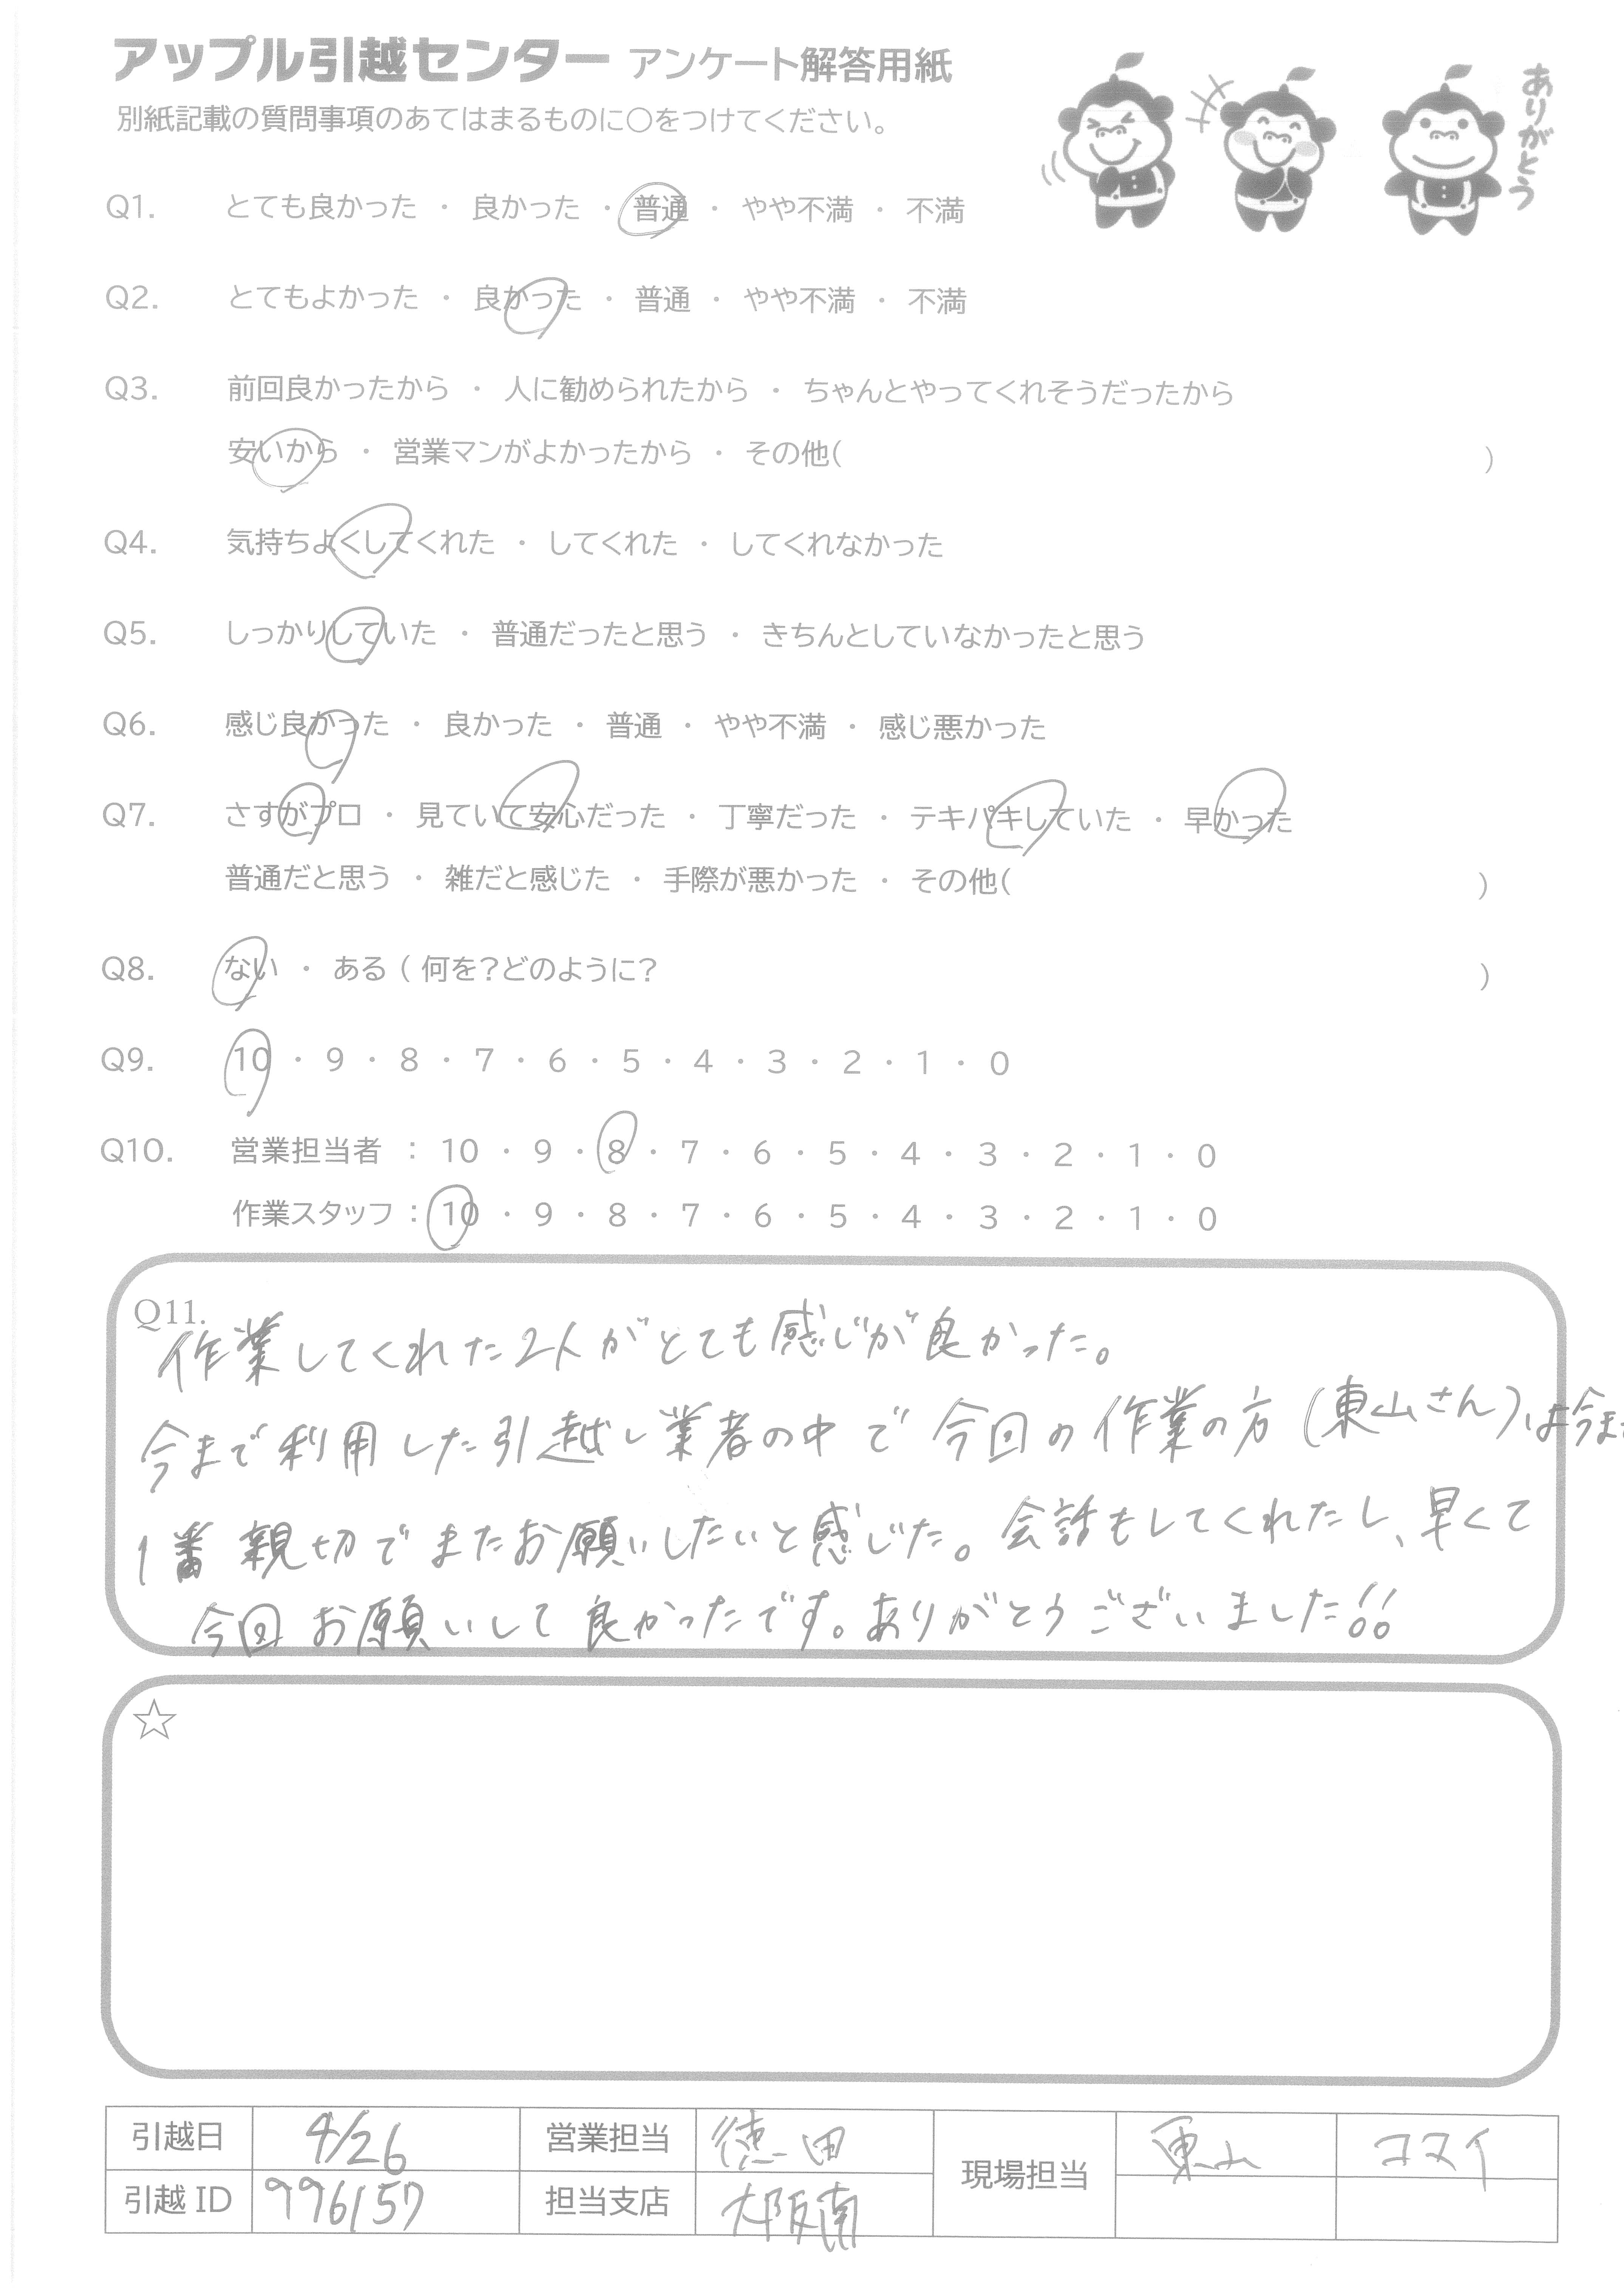 アップル引越センター アンケート解答用紙
別紙記載の質問事項のあてはまるものに○をつけてください。
ありがとう
Q1. とても良かった ・ 良かった ・ 普通 ・ やや不満 ・ 不満
Q2. とてもよかった ・ 良かった ・ 普通 ・ やや不満 ・ 不満
Q3. 前回良かったから ・ 人に勧められたから ・ ちゃんとやってくれそうだったから
安いから ・ 営業マンがよかったから ・ その他( )
Q4. 気持ちよくしてくれた ・ してくれた ・ してくれなかった
Q5. しっかりしていた ・ 普通だったと思う ・ きちんとしていなかったと思う
Q6. 感じ良かった ・ 良かった ・ 普通 ・ やや不満 ・ 感じ悪かった
Q7. さすがプロ ・ 見ていて安心だった ・ 丁寧だった ・ テキパキしていた ・ 早かった
普通だと思う ・ 雑だと感じた ・ 手際が悪かった ・ その他( )
Q8. ない ・ ある ( 何を?どのように? )
Q9. 10 ・ 9 ・ 8 ・ 7 ・ 6 ・ 5 ・ 4 ・ 3 ・ 2 ・ 1 ・ 0
Q10. 営業担当者 : 10 ・ 9 ・ 8 ・ 7 ・ 6 ・ 5 ・ 4 ・ 3 ・ 2 ・ 1 ・ 0
作業スタッフ : 10 ・ 9 ・ 8 ・ 7 ・ 6 ・ 5 ・ 4 ・ 3 ・ 2 ・ 1 ・ 0
Q11.
作業してくれた2人がとても感じが良かった。
今まで利用した引越し業者の中で今回の作業の方(東山さん)は今ま
1番親切でまたお願いしたいと感じた。会話もしてくれたし、早くて
今回お願いして良かったです。ありがとうございました!!
☆
引越日 4/26 営業担当 徳田 現場担当 東山 コヌイ
引越 ID 996157 担当支店 大阪南